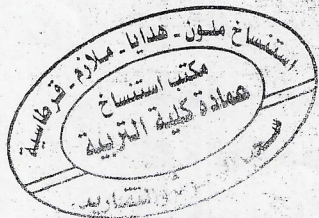 استنساخ ملون - هدايا - ملازم - قرطاسية
مكتب استنساخ
عمادة كلية التربية
سحب
والتقارير